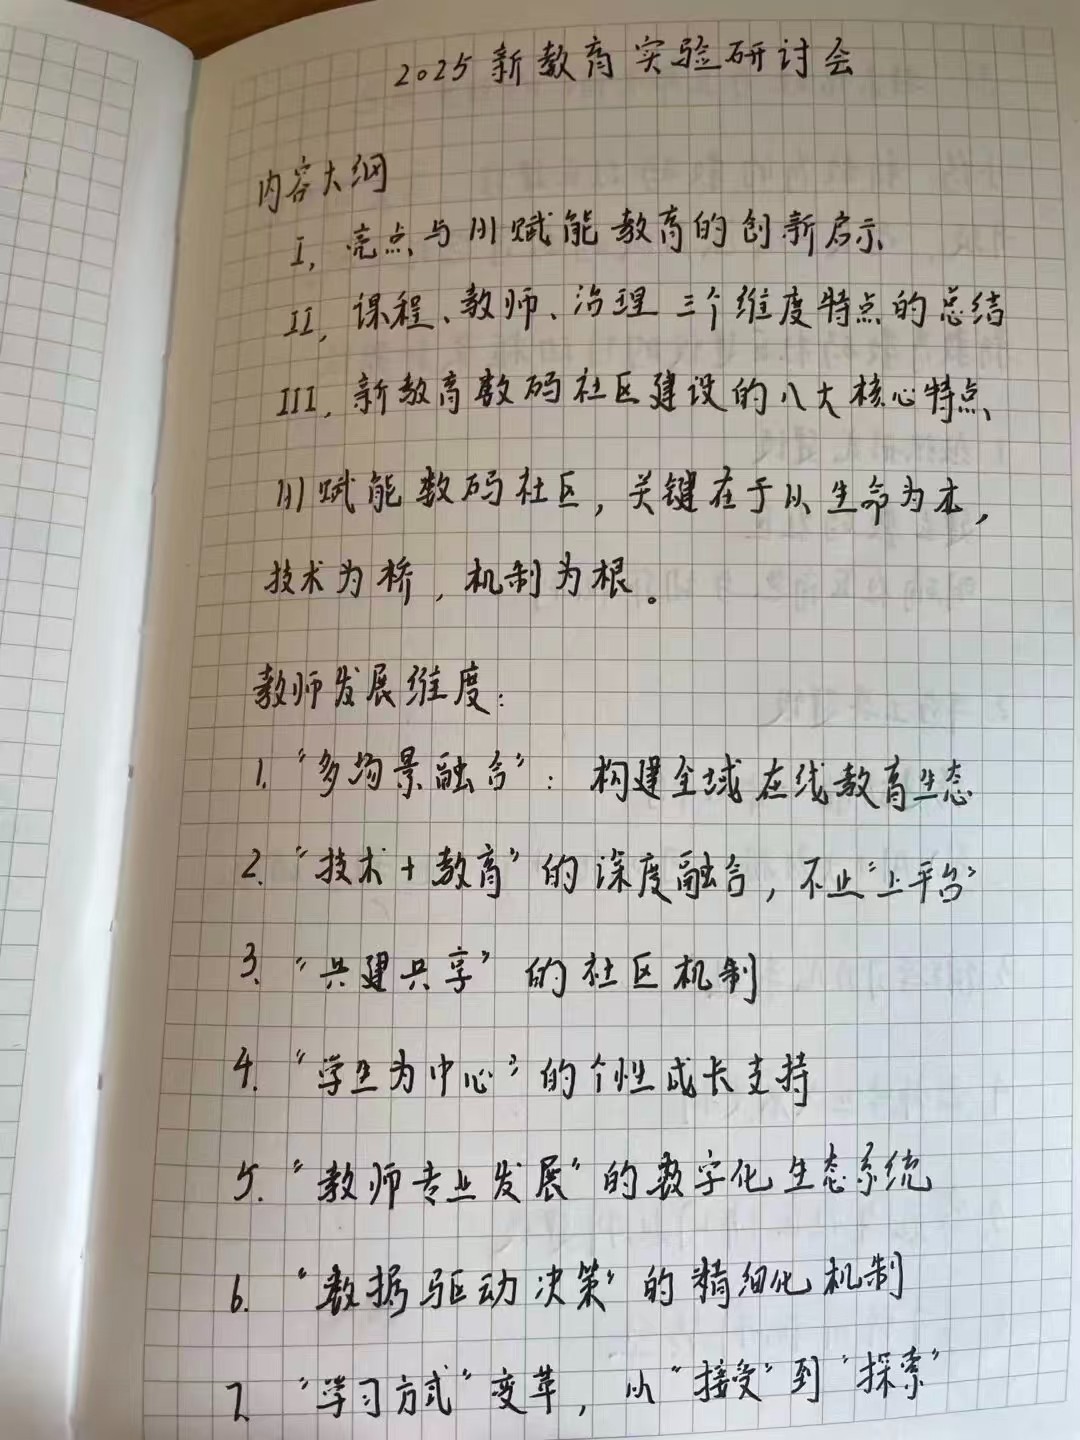 2025新教育实验研讨会
内容大纲
I, 亮点与AI赋能教育的创新启示
II, 课程、教师、治理三个维度特点的总结
III, 新教育数码社区建设的八大核心特点
AI赋能数码社区，关键在于以生命为本，
技术为桥，机制为根。
教师发展维度：
1. “多场景融合”：构建全域在线教育生态
2. “技术+教育”的深度融合，不止“上平台”
3. “共建共享”的社区机制
4. “学生为中心”的个性成长支持
5. “教师专业发展”的数字化生态系统
6. “数据驱动决策”的精细化机制
7. “学习方式”变革，从“接受”到“探索”